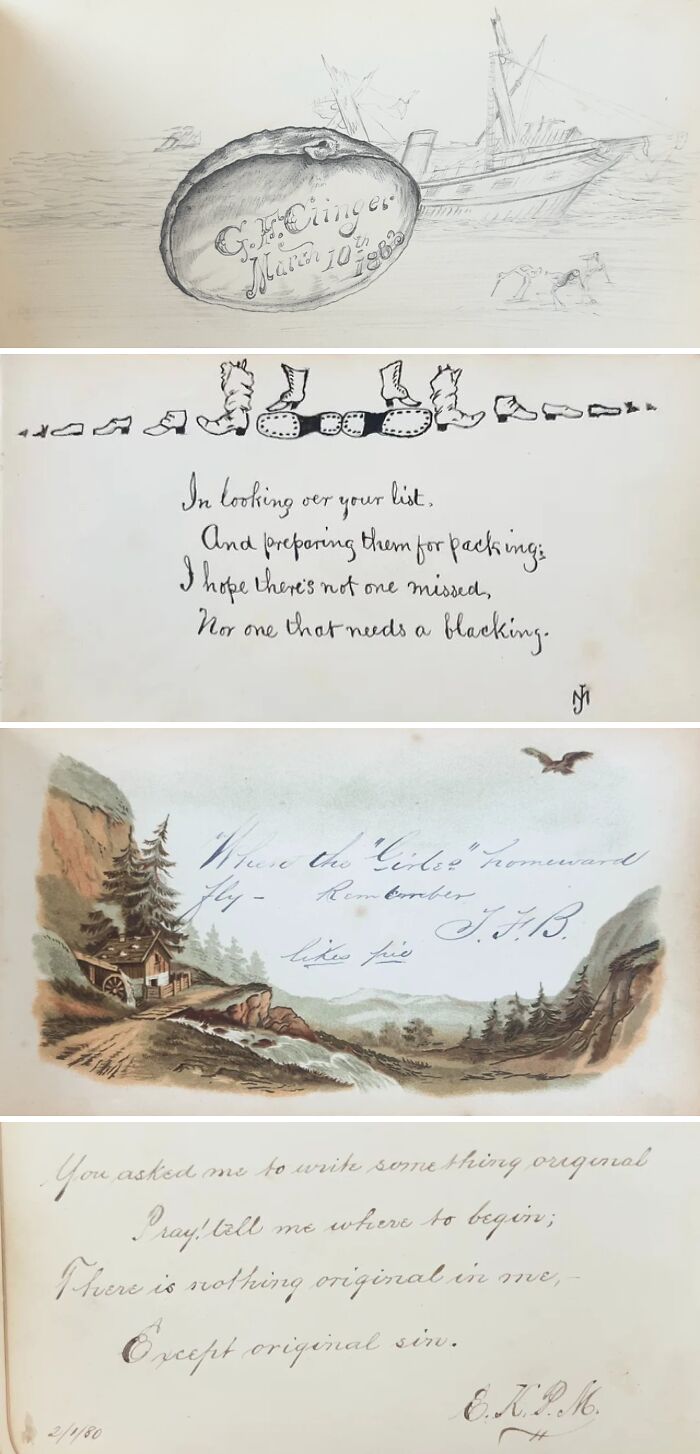 G. F. Clinger
March 10th
1880
In looking oer your list,
And preparing them for packing;
I hope there's not one missed,
Nor one that needs a blacking.
When the "Girles" homeward
fly - Remember
J. F. B.
likes pie
You asked me to write something original
Pray! tell me where to begin;
There is nothing original in me,-
Except original sin.
E. K. P. M.
2/1/80